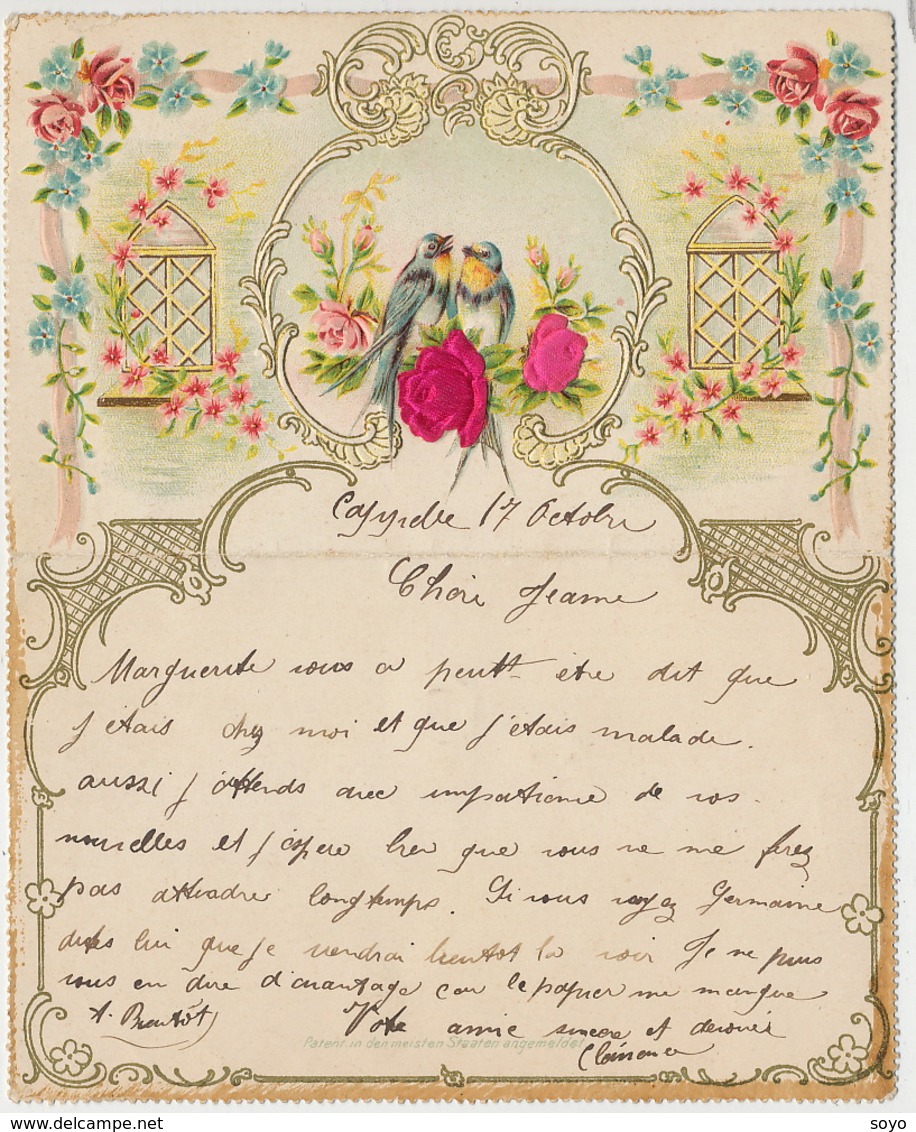 17 Octobre
Chère Jeanne
Marguerite vous a peutt-être dit que
j'étais chez moi et que j'étais malade.
aussi j'attends avec impatience de vos
nouvelles et j'espere bien que vous ne me ferez
pas attendre longtemps. Si vous voyez Germaine
dites lui que je viendrai bientot la voir Je ne puis
vous en dire d'avantage car le papier me manque
A. Bientôt Votre amie sincere et devouée
Patent in den meisten Staaten angemeldet
soyo